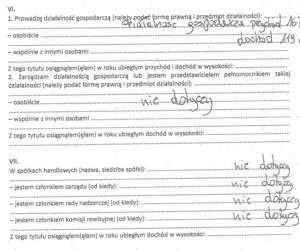 VI.
1. Prowadzę działalność gospodarczą (należy podać formę prawną i przedmiot działalności):
działalność gospodarcza przychód
– osobiście
dochód 119
– wspólnie z innymi osobami
Z tego tytułu osiągnąłem(ęłam) w roku ubiegłym przychód i dochód w wysokości:
2. Zarządzam działalnością gospodarczą lub jestem przedstawicielem pełnomocnikiem takiej
działalności (należy podać formę prawną i przedmiot działalności):
nie dotyczy
– osobiście
– wspólnie z innymi osobami
Z tego tytułu osiągnąłem(ęłam) w roku ubiegłym dochód w wysokości:
VII.
W spółkach handlowych (nazwa, siedziba spółki): nie dotyczy
– jestem członkiem zarządu (od kiedy): nie dotyczy
– jestem członkiem rady nadzorczej (od kiedy): nie dotyczy
– jestem członkiem komisji rewizyjnej (od kiedy): nie dotyczy
Z tego tytułu osiągnąłem(ęłam) w roku ubiegłym dochód w wysokości: